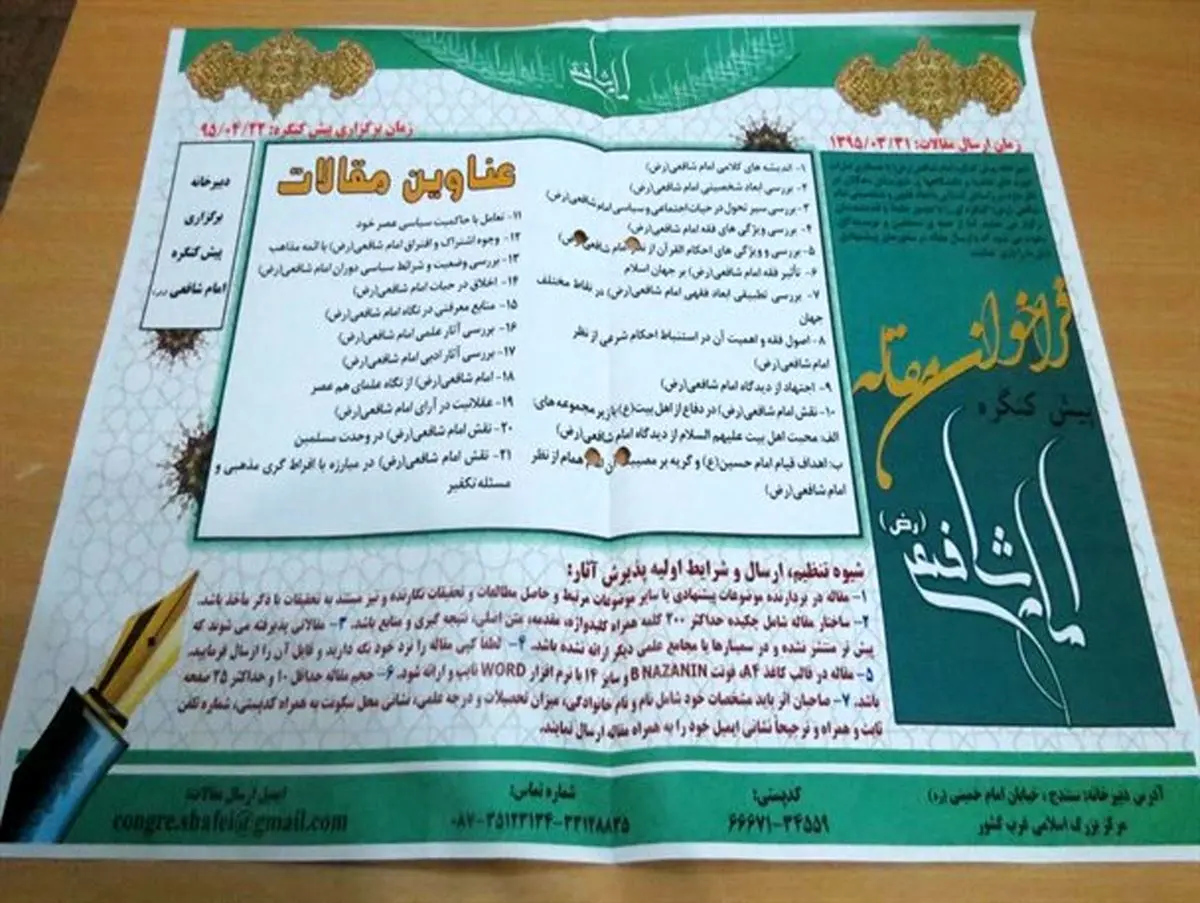 امام شافعی
زمان ارسال مقالات: ۱۳۹۵/۰۳/۳۱
زمان برگزاری پیش کنگره: ۹۵/۰۴/۲۲
فراخوان مقاله
پیش کنگره
امام شافعی (رض)
۱- اندیشه های کلامی امام شافعی(رض)
۲- بررسی ابعاد شخصیتی امام شافعی(رض)
۳- بررسی سیر تحول در حیات اجتماعی و سیاسی امام شافعی(رض)
۴- بررسی ویژگی های فقه امام شافعی(رض)
۵- بررسی و ویژگی های احکام القرآن از نظر امام شافعی(رض)
۶- تأثیر فقه امام شافعی(رض) بر جهان اسلام
۷- بررسی تطبیقی ابعاد فقهی امام شافعی(رض) در نقاط مختلف
جهان
۸- اصول فقه و اهمیت آن در استنباط احکام شرعی از نظر
امام شافعی(رض)
۹- اجتهاد از دیدگاه امام شافعی(رض)
۱۰- نقش امام شافعی(رض) در دفاع از اهل بیت(ع) با زیر مجموعه های:
الف: محبت اهل بیت علیهم السلام از دیدگاه امام شافعی(رض)
ب: اهداف قیام امام حسین(ع) و گریه بر مصیبت آن امام همام از نظر
امام شافعی(رض)
عناوین مقالات
۱۱- تعامل با حاکمیت سیاسی عصر خود
۱۲- وجوه اشتراک و افتراق امام شافعی(رض) با ائمه مذاهب
۱۳- بررسی وضعیت و شرائط سیاسی دوران امام شافعی(رض)
۱۴- اخلاق در حیات امام شافعی(رض)
۱۵- منابع معرفتی در نگاه امام شافعی(رض)
۱۶- بررسی آثار علمی امام شافعی(رض)
۱۷- بررسی آثار ادبی امام شافعی(رض)
۱۸- امام شافعی(رض) از نگاه علمای هم عصر
۱۹- عقلانیت در آرای امام شافعی(رض)
۲۰- نقش امام شافعی(رض) در وحدت مسلمین
۲۱- نقش امام شافعی(رض) در مبارزه با افراط گری مذهبی و
مسئله تکفیر
دبیرخانه
برگزاری
پیش کنگره
امام شافعی (رض)
شیوه تنظیم، ارسال و شرایط اولیه پذیرش آثار:
۱- مقاله در بردارنده موضوعات پیشنهادی یا سایر موضوعات مرتبط و حاصل مطالعات و تحقیقات نگارنده و نیز مستند به تحقیقات با ذکر مأخذ باشد.
۲- ساختار مقاله شامل چکیده حداکثر ۲۰۰ کلمه همراه کلیدواژه، مقدمه، متن اصلی، نتیجه گیری و منابع باشد. ۳- مقالاتی پذیرفته می شوند که
پیش تر منتشر نشده و در سمینارها یا مجامع علمی دیگر ارائه نشده باشد. ۴- لطفاً کپی مقاله را نزد خود نگه دارید و فایل آن را ارسال فرمایید.
۵- مقاله در قالب کاغذ A۴، فونت B NAZANIN و سایز ۱۴ با نرم افزار WORD تایپ و ارائه شود. ۶- حجم مقاله حداقل ۱۰ و حداکثر ۲۵ صفحه
باشد. ۷- صاحبان اثر باید مشخصات خود شامل نام و نام خانوادگی، میزان تحصیلات و درجه علمی، نشانی محل سکونت به همراه کدپستی، شماره تلفن
ثابت و همراه و ترجیحاً نشانی ایمیل خود را به همراه مقاله ارسال نمایند.
آدرس دبیرخانه: سنندج ، خیابان امام خمینی (ره)
مرکز بزرگ اسلامی غرب کشور
کدپستی:
۶۶۶۷۱-۳۴۵۵۹
شماره تماس:
۰۸۷-۳۵۱۲۳۱۳۴-۳۳۱۲۸۸۳۵
ایمیل ارسال مقالات:
congre.shafei@gmail.com